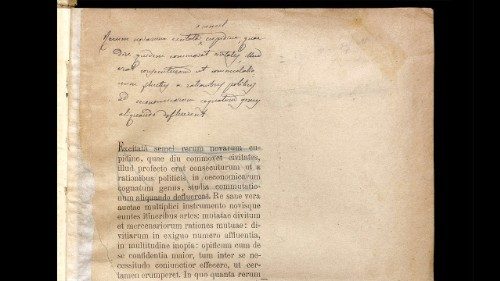 semel
Rerum novarum excitata cupidine, quae
diu quidem commovet civitates, illud
erat consecuturum ut
a rationibus politicis
ad oeconomicarum cognatum genus
aliquando defluerent
Excitatâ semel rerum novarum cu-
pidine, quae diu commovet civitates,
illud profecto erat consecuturum ut a
rationibus politicis in oeconomicarum
cognatum genus, studia commutatio-
num aliquando defluerent. Re sane vera
auctae multiplici instrumento novisque
euntes itineribus artes: mutatae divitum
et mercenariorum rationes mutuae: di-
vitiarum in exiguo numero affluentia,
in multitudine inopia: opificum cum de
se confidentia maior, tum inter se ne-
cessitudo coniunctior effecere, ut cer-
tamen erumperet. In quo quanta rerum